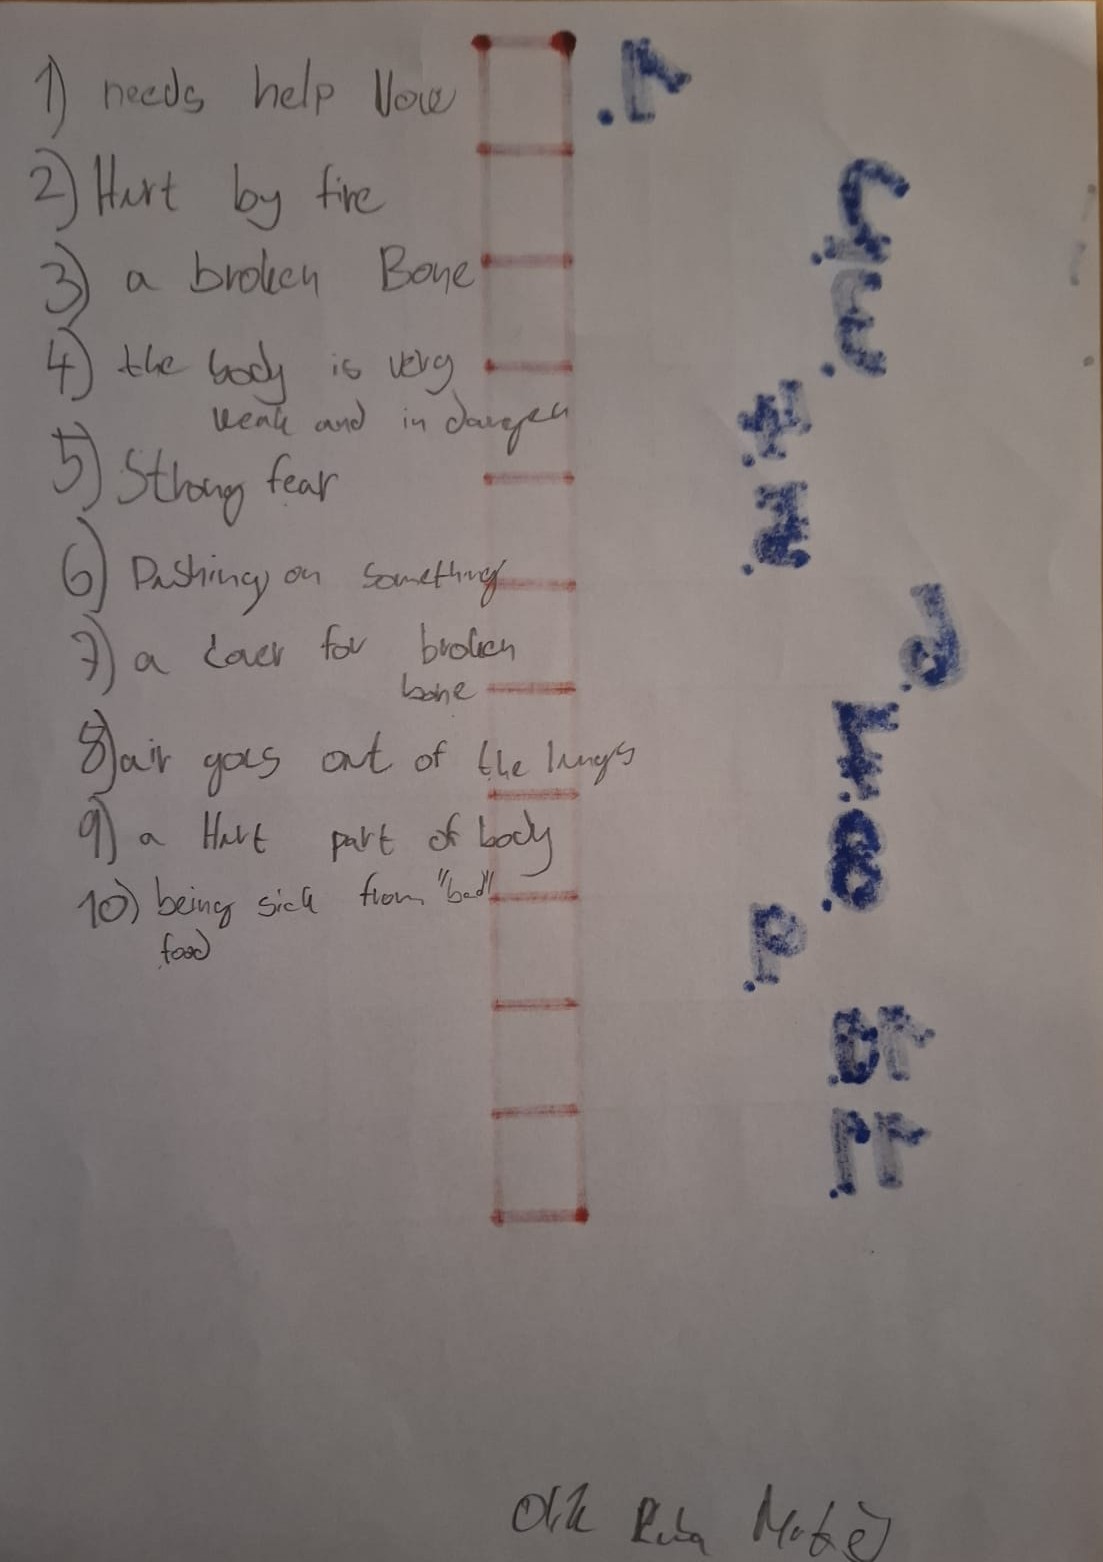 1) needs help Now
2) Hurt by fire
3) a broken Bone
4) the body is very
weak and in danger
5) Strong fear
6) Pushing on something
7) a caer for broken
bone
8) air goes out of the lungs
9) a Hurt part of body
10) being sick from "bad"
food
1.
2.
3.
4.
5.
6.
7.
8.
9.
10.
11.
Kuba Matěj